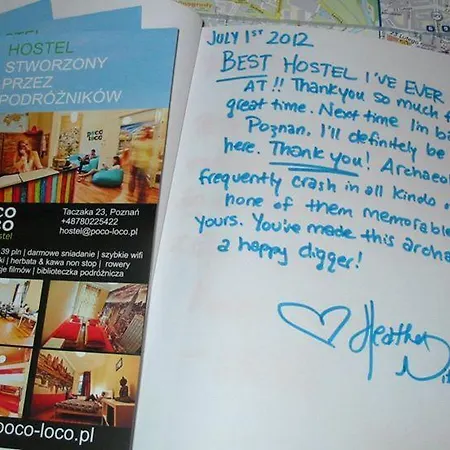 HOSTEL
STWORZONY
PRZEZ
PODRÓŻNIKÓW
POCO
LOCO
Taczaka 23, Poznań
+48780225422
hostel@poco-loco.pl
39 pln | darmowe śniadanie | szybkie wifi
herbata & kawa non stop | rowery
filmów | biblioteczka podróżnicza
poco-loco.pl
JULY 1ST 2012
BEST HOSTEL I'VE EVER
AT!! Thankyou so much f
great time. Next time I'm ba
Poznan. I'll definitely be
here. Thank you! Archaeol
frequently crash in all kinds
none of them memorable
yours. You've made this archa
a happy digger!
Heather